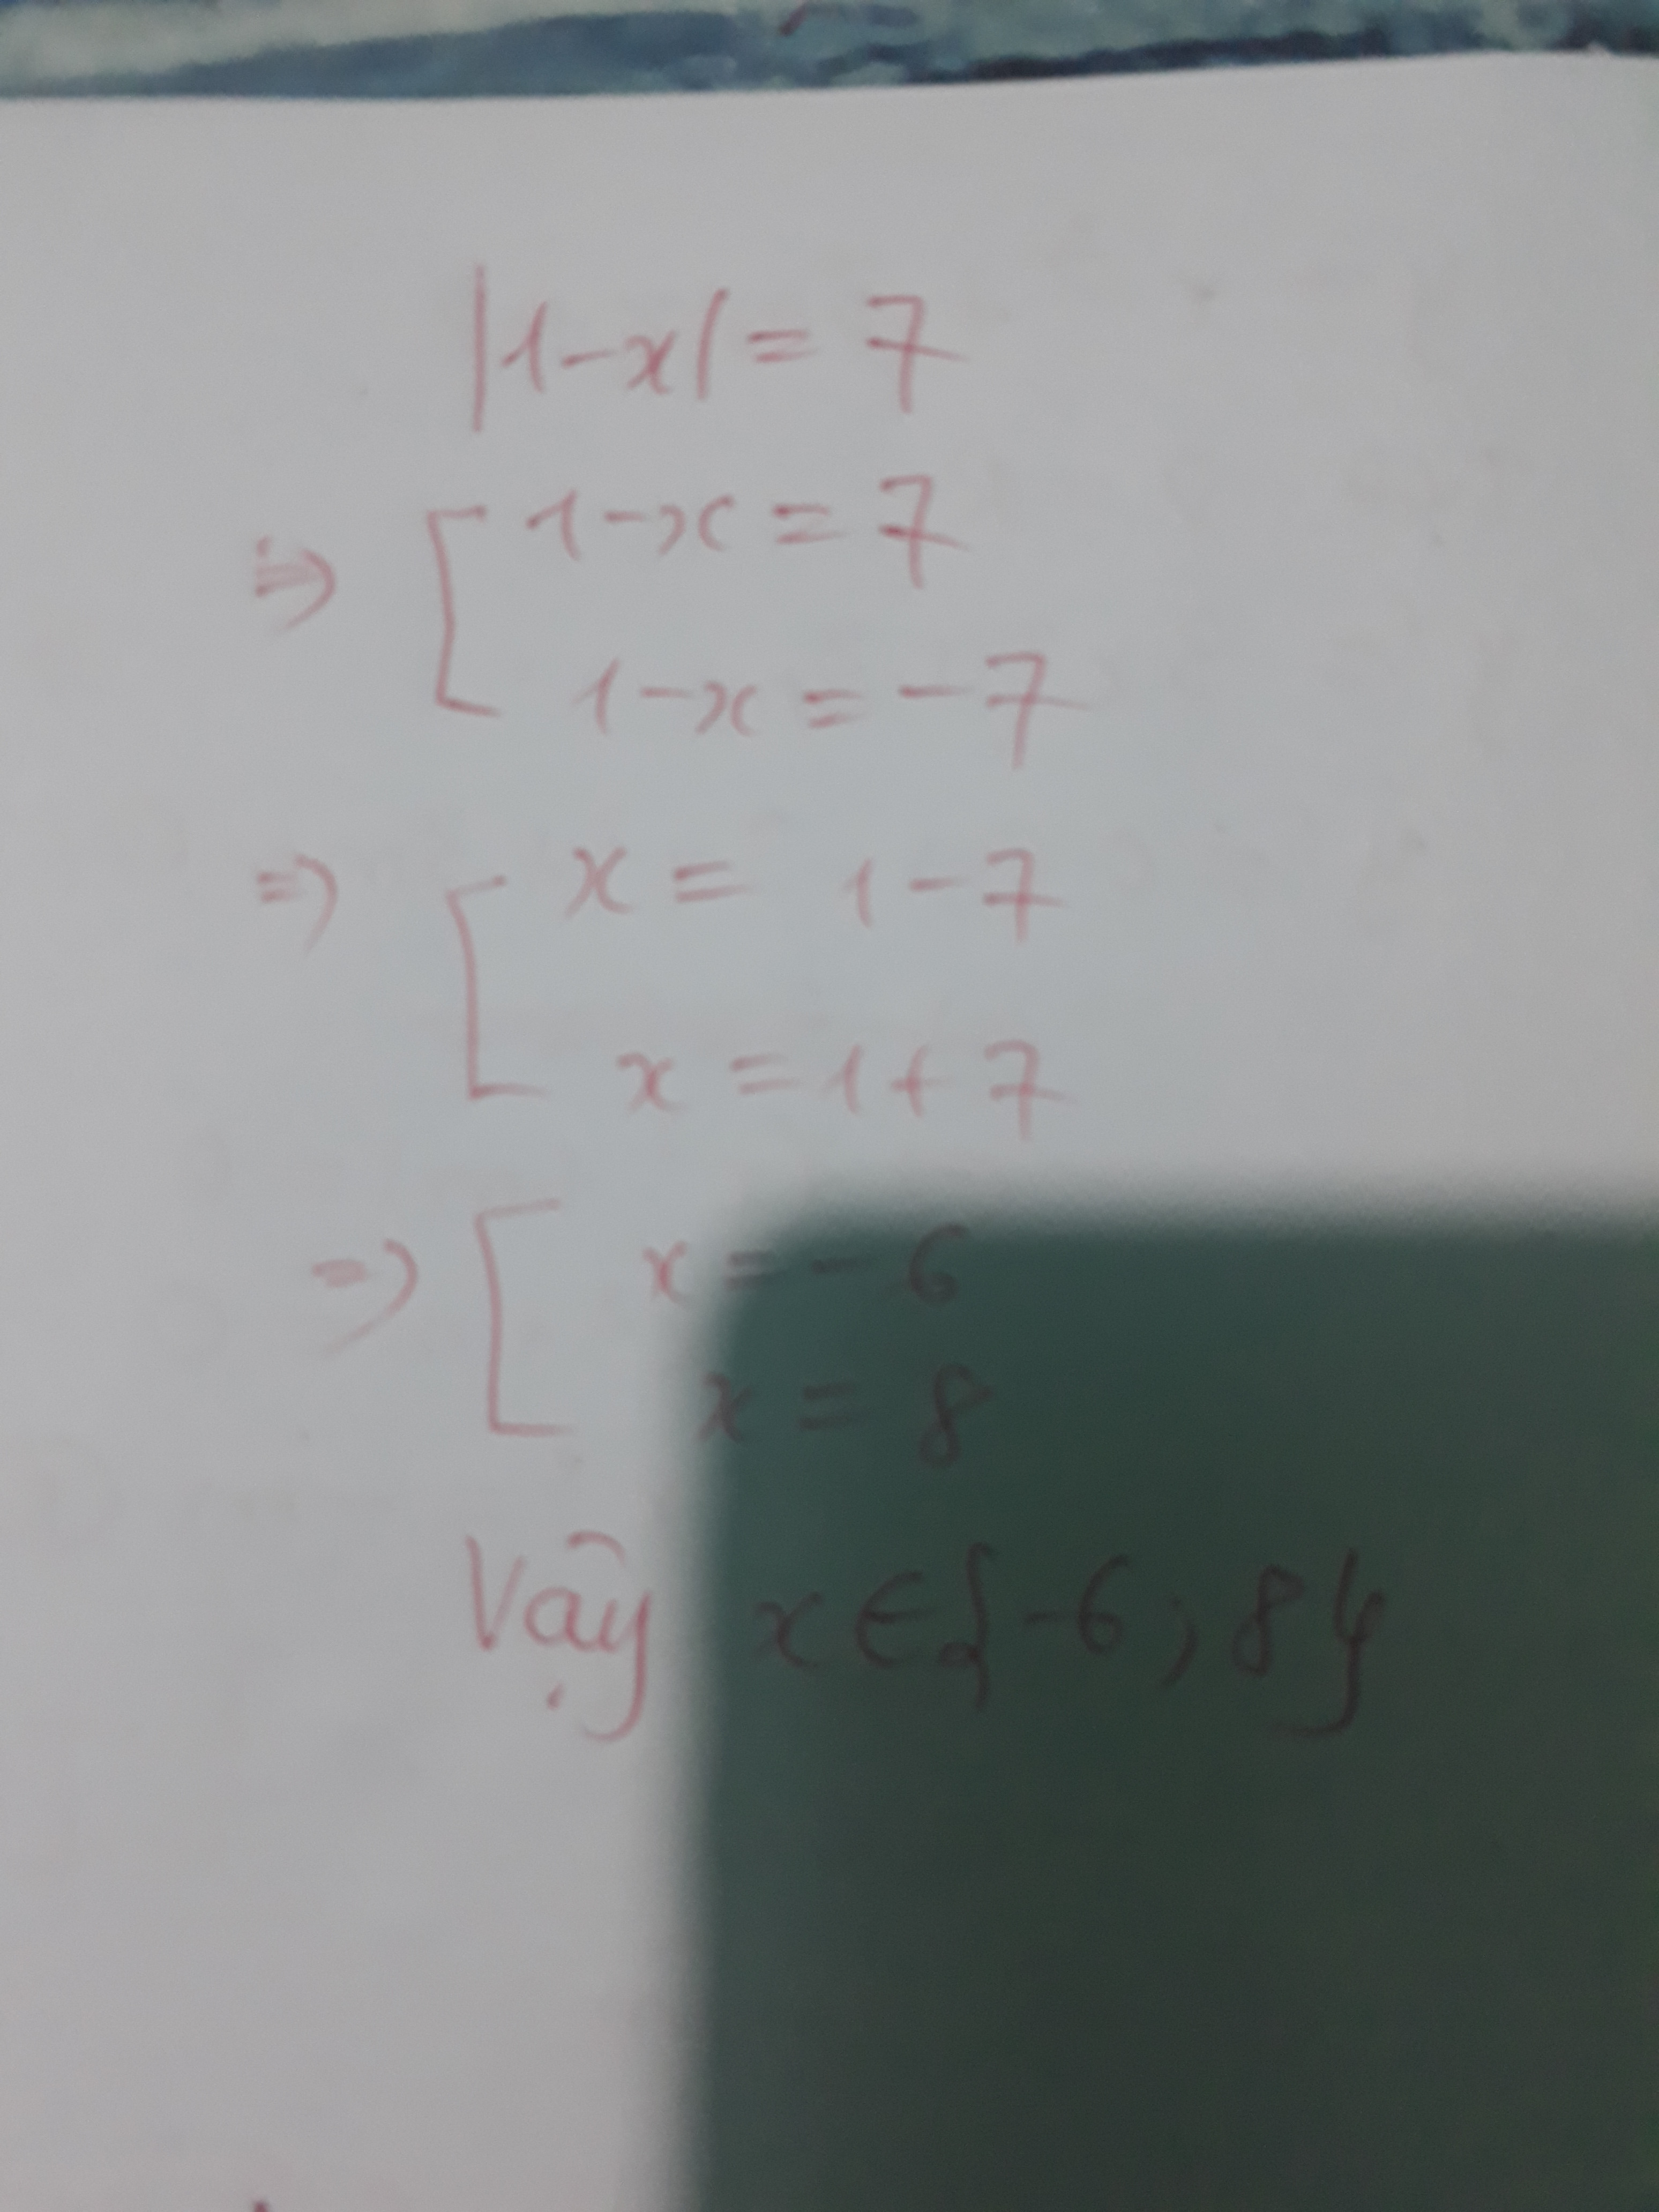 |1-x| = 7
=> [ 1-x = 7
1-x = -7
=> [ x = 1-7
x = 1+7
=> [ x = -6
x = 8
Vậy x∈{-6; 8}